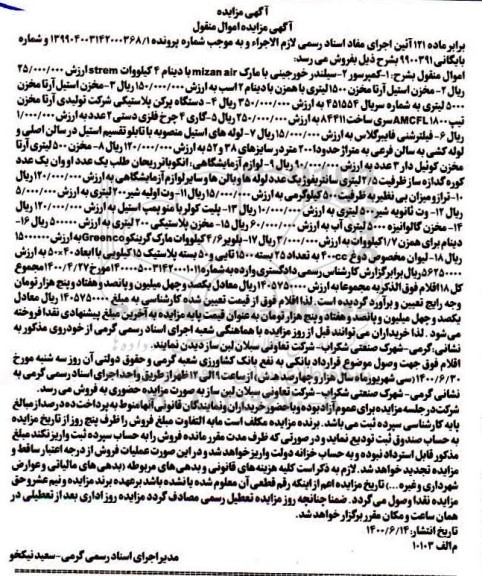 آگهی مزایده
آگهی مزایده اموال منقول
برابر ماده ۱۲۱ آئین اجرای مفاد اسناد رسمی لازم الاجراء و به موجب شماره پرونده ۱۳۹۹۰۴۰۰۳۱۴۲۰۰۰۳۶۸/۱ و شماره
بایگانی ۹۹۰۰۳۹۱ بشرح ذیل بفروش می رسد:
اموال منقول بشرح: ۱-کمپرسور ۲-سیلندر خورجینی با مارک mizan air با دینام ۴ کیلووات strem ارزش ۲۵/۰۰۰/۰۰۰
ریال ۲- مخزن استیل آرتا مخزن ۱۵۰۰ لیتری با همزن با دینام ۲ اسب به ارزش ۱۵۰/۰۰۰/۰۰۰ ریال ۳-مخزن استیل آرتا مخزن
۵۰۰۰ لیتری به شماره سریال ۴۵۱۵۵۴ به ارزش ۳۵۰/۰۰۰/۰۰۰ ریال ۴- دستگاه پرکن پلاستیکی شرکت تولیدی آرتا مخزن
تیپ AMCFL۱۸۰۰ سری ساخت ۸۴۴۱۱ به ارزش ۲۵۰/۰۰۰/۰۰۰ ریال ۵-گاری ۴ چرخ فلزی دستی ۲ عدد به ارزش ۱/۰۰۰/۰۰۰
ریال ۶- فیلتر شنی فایبرگلاس به ارزش ۱۵/۰۰۰/۰۰۰ ریال ۷- لوله های استیل منصوبه با تابلو تقسیم استیل در سالن اصلی و
لوله کشی به سالن فرعی به متراژ حدودا ۲۰۰ متر در سایزهای ۳۸ و ۵۲ به ارزش ۱۲۰/۰۰۰/۰۰۰ ریال ۸- مخزن ۵۰۰ لیتری آرتا
مخزن کوئیل دار ۳ عدد به ارزش ۹۰/۰۰۰/۰۰۰ ریال ۹- لوازم آزمایشگاهی: انکوباتور ریحان طلب یک عدد آون یک عدد
کوره گدازه ساز ظرفیت ۲/۵ لیتری سانتریفوژ یک عدد لوله ها و بالن ها و سایر لوازم آزمایشگاهی به ارزش ۱۲۰/۰۰۰/۰۰۰ ریال
۱۰- ترازو میزان بی نظیر به ظرفیت ۵۰۰ کیلوگرمی به ارزش ۱۵/۰۰۰/۰۰۰ ریال ۱۱- وت اولیه شیر ۲۰۰ لیتری به ارزش ۵/۰۰۰/۰۰۰
ریال ۱۲- وت ثانویه شیر ۵۰۰ لیتری به ارزش ۱۰/۰۰۰/۰۰۰ ریال ۱۳- پلیت کولر با منو پمپ استیل به ارزش ۱۲۰/۰۰۰/۰۰۰
ریال ۱۴- مخزن گالوانیزه ۵۰۰۰ لیتری آب به ارزش ۶۰/۰۰۰/۰۰۰ ریال ۱۵- مخزن پلاستیکی ۲۰۰ لیتری به ارزش ۵۰۰۰۰۰ ریال ۱۶-
دینام برای همزن ۱/۷ کیلووات به ارزش ۳/۰۰۰/۰۰۰ ریال ۱۷- بلویر ۴/۶ کیلووات مارک گرینکو Greenco به ارزش ۱۵۰۰۰۰۰۰
ریال ۱۸- لیوان مخصوص دوغ ۴۰۰cc به تعداد ۲۵ بسته ۱۵۰۰ تایی و ۵۰ بسته پلاستیک ۱۵ کیلویی با ابعاد ۴۰×۵۰ به ارزش
۵۶۲۵۰۰۰۰ ریال برابر گزارش کارشناس رسمی دادگستری وارده به شماره ۱۴۰۰۰۵۰۰۳۱۴۲۰۰۰۱۰۱۱ مورخ ۱۴۰۰/۴/۲۷ مجموع
کل ۱۸ اقلام فوق الذکر به مجموعا به ارزش ۱۴۰۵۷۵۰۰۰۰ ریال معادل یکصد و چهل میلیون و پانصد و هفتاد و پنج هزار تومان
وجه رایج تعیین و برآورد گردیده است. لذا اقلام فوق از قیمت تعیین شده کارشناسی به مبلغ ۱۴۰۵۷۵۰۰۰۰ ریال معادل
یکصد و چهل میلیون و پانصد و هفتاد و پنج هزار تومان به عنوان قیمت پایه مزایده به آخرین مبلغ پیشنهادی نقدا فروخته
می شود . لذا خریداران می توانند قبل از روز مزایده با هماهنگی شعبه اجرای اسناد رسمی گرمی از خودروی مذکور به
نشانی: گرمی- شهرک صنعتی شکراب- شرکت تعاونی سبلان لبن ساز دیدن نمایند.
اقلام فوق جهت وصول موضوع قرارداد بانکی به نفع بانک کشاورزی شعبه گرمی و حقوق دولتی آن روز سه شنبه مورخ
۱۴۰۰/۶/۳۰ (سی شهریورماه سال هزار و چهارصد ه.ش) از ساعت ۹ الی ۱۲ ظهر از طریق واحد اجرای اسناد رسمی گرمی به
نشانی گرمی- شهرک صنعتی شکراب- شرکت تعاونی سبلان لبن ساز به صورت مزایده حضوری به فروش می رسد.
شرکت در جلسه مزایده برای عموم آزاد بوده و با حضور خریداران و نمایندگان قانونی آنها منوط به پرداخت ده درصد از مبالغ
پایه کارشناسی سپرده ثبت می باشد. برنده مزایده مکلف است مابه التفاوت مبلغ فروش را ظرف پنج روز از تاریخ مزایده
به حساب صندوق ثبت تودیع نماید و در صورتی که ظرف مدت مقرر مانده فروش را به حساب سپرده ثبت واریز نکند مبلغ
مذکور قابل استرداد نبوده و به حساب خزانه دولت واریز خواهد شد و در این صورت عملیات فروش از درجه اعتبار ساقط و
مزایده تجدید خواهد شد. لازم به ذکر است کلیه هزینه های قانونی و بدهی های مربوطه (بدهی های مالیاتی و عوارض
شهرداری و غیره ...) تاریخ مزایده اعم از اینکه رقم قطعی آن معلوم شده یا نشده باشد بر عهده برنده مزایده و نیم عشر و حق
مزایده نقدا وصول می گردد. ضمنا چنانچه روز مزایده تعطیل رسمی مصادف گردد مزایده روز اداری بعد از تعطیلی در
همان ساعت و مکان مقرر برگزار خواهد شد.
تاریخ انتشار: ۱۴۰۰/۶/۱۴
م الف ۱۰۱۰۳
مدیر اجرای اسناد رسمی گرمی-سعید نیکخو